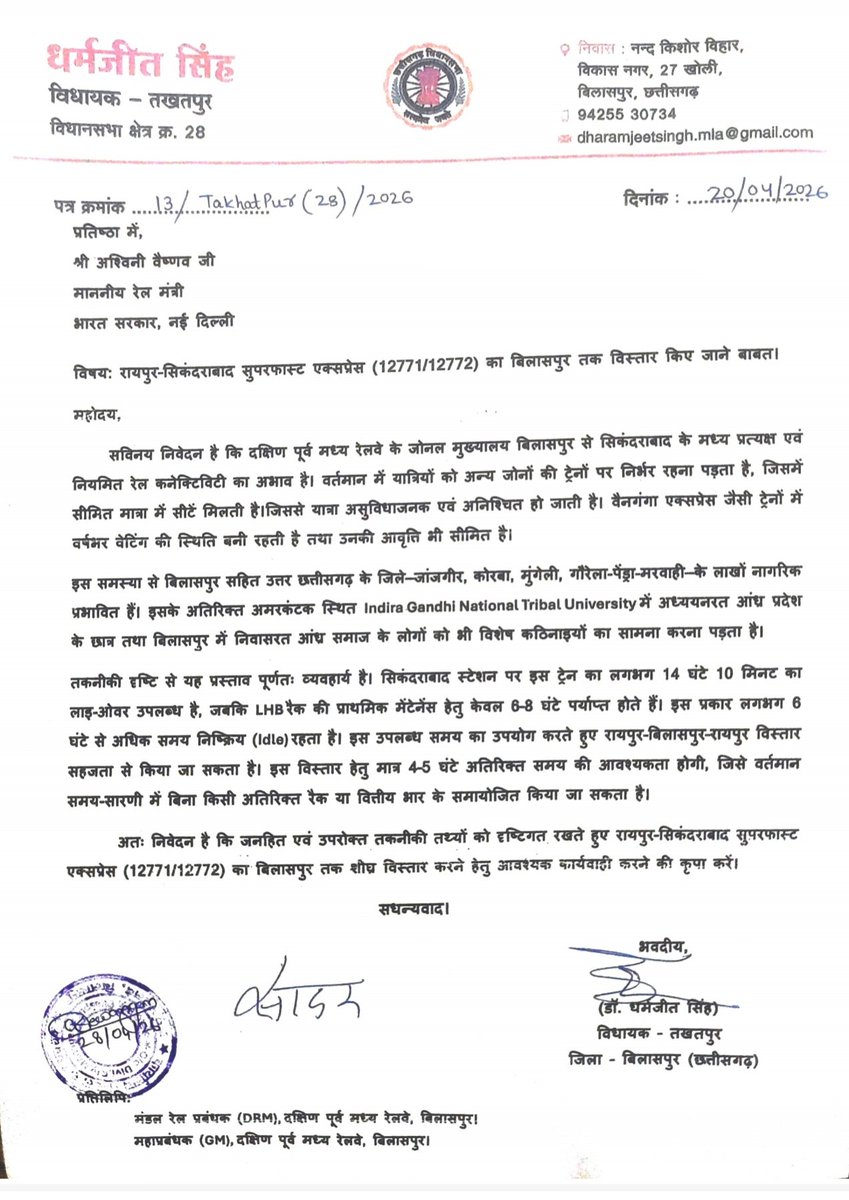 धर्मजीत सिंह
विधायक – तखतपुर
विधानसभा क्षेत्र क्र. 28
छत्तीसगढ़ विधानसभा
सत्यमेव जयते
निवास : नन्द किशोर विहार,
विकास नगर, 27 खोली,
बिलासपुर, छत्तीसगढ़
94255 30734
dharamjeetsingh.mla@gmail.com
पत्र क्रमांक .....13/TakhatPur(28)/2026
दिनांक : ....20/04/2026
प्रतिष्ठा में,
श्री अश्विनी वैष्णव जी
माननीय रेल मंत्री
भारत सरकार, नई दिल्ली
विषय: रायपुर-सिकंदराबाद सुपरफास्ट एक्सप्रेस (12771/12772) का बिलासपुर तक विस्तार किए जाने बाबत।
महोदय,
सविनय निवेदन है कि दक्षिण पूर्व मध्य रेलवे के जोनल मुख्यालय बिलासपुर से सिकंदराबाद के मध्य प्रत्यक्ष एवं
नियमित रेल कनेक्टिविटी का अभाव है। वर्तमान में यात्रियों को अन्य जोनों की ट्रेनों पर निर्भर रहना पड़ता है, जिसमें
सीमित मात्रा में सीटें मिलती है।जिससे यात्रा असुविधाजनक एवं अनिश्चित हो जाती है। वैनगंगा एक्सप्रेस जैसी ट्रेनों में
वर्षभर वेटिंग की स्थिति बनी रहती है तथा उनकी आवृत्ति भी सीमित है।
इस समस्या से बिलासपुर सहित उत्तर छत्तीसगढ़ के जिले–जांजगीर, कोरबा, मुंगेली, गौरेला-पेंड्रा-मरवाही–के लाखों नागरिक
प्रभावित हैं। इसके अतिरिक्त अमरकंटक स्थित Indira Gandhi National Tribal University में अध्ययनरत आंध्र प्रदेश
के छात्र तथा बिलासपुर में निवासरत आंध्र समाज के लोगों को भी विशेष कठिनाइयों का सामना करना पड़ता है।
तकनीकी दृष्टि से यह प्रस्ताव पूर्णतः व्यवहार्य है। सिकंदराबाद स्टेशन पर इस ट्रेन का लगभग 14 घंटे 10 मिनट का
लाइ-ओवर उपलब्ध है, जबकि LHB रैक की प्राथमिक मेंटेनेंस हेतु केवल 6-8 घंटे पर्याप्त होते हैं। इस प्रकार लगभग 6
घंटे से अधिक समय निष्क्रिय (Idle) रहता है। इस उपलब्ध समय का उपयोग करते हुए रायपुर-बिलासपुर-रायपुर विस्तार
सहजता से किया जा सकता है। इस विस्तार हेतु मात्र 4-5 घंटे अतिरिक्त समय की आवश्यकता होगी, जिसे वर्तमान
समय-सारणी में बिना किसी अतिरिक्त रैक या वित्तीय भार के समायोजित किया जा सकता है।
अतः निवेदन है कि जनहित एवं उपरोक्त तकनीकी तथ्यों को दृष्टिगत रखते हुए रायपुर-सिकंदराबाद सुपरफास्ट
एक्सप्रेस (12771/12772) का बिलासपुर तक शीघ्र विस्तार करने हेतु आवश्यक कार्यवाही करने की कृपा करें।
सधन्यवाद।
सादर
भवदीय,
(डॉ. धर्मजीत सिंह)
विधायक - तखतपुर
जिला - बिलासपुर (छत्तीसगढ़)
28/04/26
प्रतिलिपि:
मंडल रेल प्रबंधक (DRM), दक्षिण पूर्व मध्य रेलवे, बिलासपुर।
महाप्रबंधक (GM), दक्षिण पूर्व मध्य रेलवे, बिलासपुर।